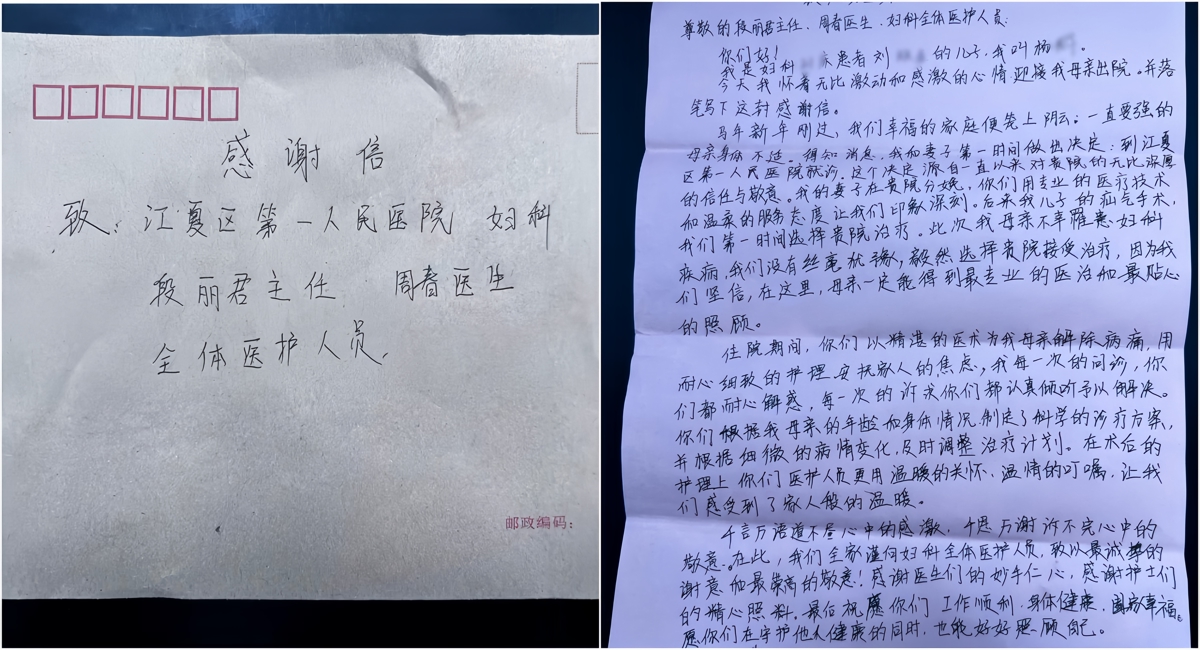 感谢信
致：江夏区第一人民医院 妇科
段丽君主任 周春医生
全体医护人员.
邮政编码：
尊敬的段丽君主任、周春医生、妇科全体医护人员：
你们好！
我是妇科 床患者刘 的儿子，我叫杨 。
今天我怀着无比激动和感激的心情迎接我母亲出院。并落
笔写下这封感谢信。
马年新年刚过，我们幸福的家庭便笼上阴云。一直要强的
母亲身体不适。得知消息，我和妻子第一时间做出决定：到江夏
区第一人民医院就诊。这个决定源自一直以来对贵院的无比深厚
的信任与敬意。我的妻子在贵院分娩，你们用专业的医疗技术
和温柔的服务态度让我们印象深刻。后来我儿子的疝气手术，
我们第一时间选择贵院治疗。此次我母亲不幸罹患妇科
疾病，我们没有丝毫犹豫，毅然选择贵院接受治疗，因为我
们坚信，在这里，母亲一定能得到最专业的医治和最贴心
的照顾。
住院期间，你们以精湛的医术为我母亲解除病痛，用
耐心细致的护理安抚家人的焦虑，我每一次的问诊，你
们都耐心解惑，每一次的诉求你们都认真倾听予以解决。
你们根据我母亲的年龄和身体情况制定了科学的诊疗方案，
并根据细微的病情变化，及时调整治疗计划。在术后的
护理上你们医护人员更用温暖的关怀、温情的叮嘱，让我
们感受到了家人般的温暖。
千言万语道不尽心中的感激，千恩万谢诉不完心中的
敬意。在此，我们全家谨向妇科全体医护人员，致以最诚挚的
谢意和最崇高的敬意！感谢医生们的妙手仁心，感谢护士们
的精心照料。最后祝愿你们工作顺利，身体健康，阖家幸福。
愿你们在守护他人健康的同时，也能好好照顾自己。